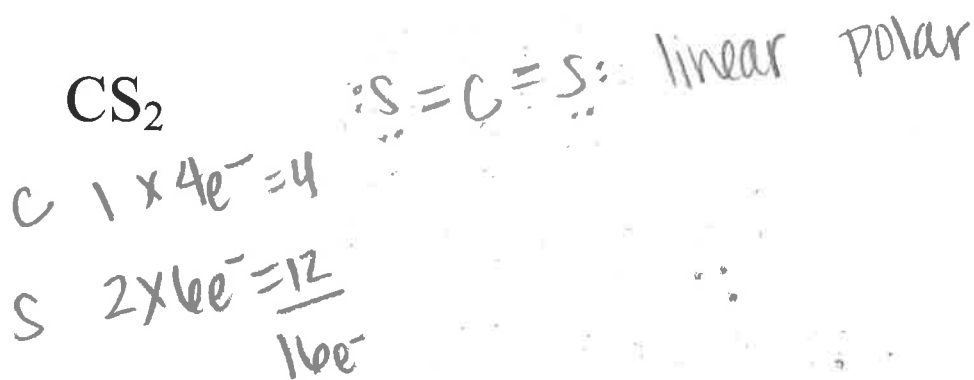 CS₂ :S̤=C=S̤: linear polar
C 1 × 4e⁻ = 4
S 2 × 6e⁻ = 12
16e⁻